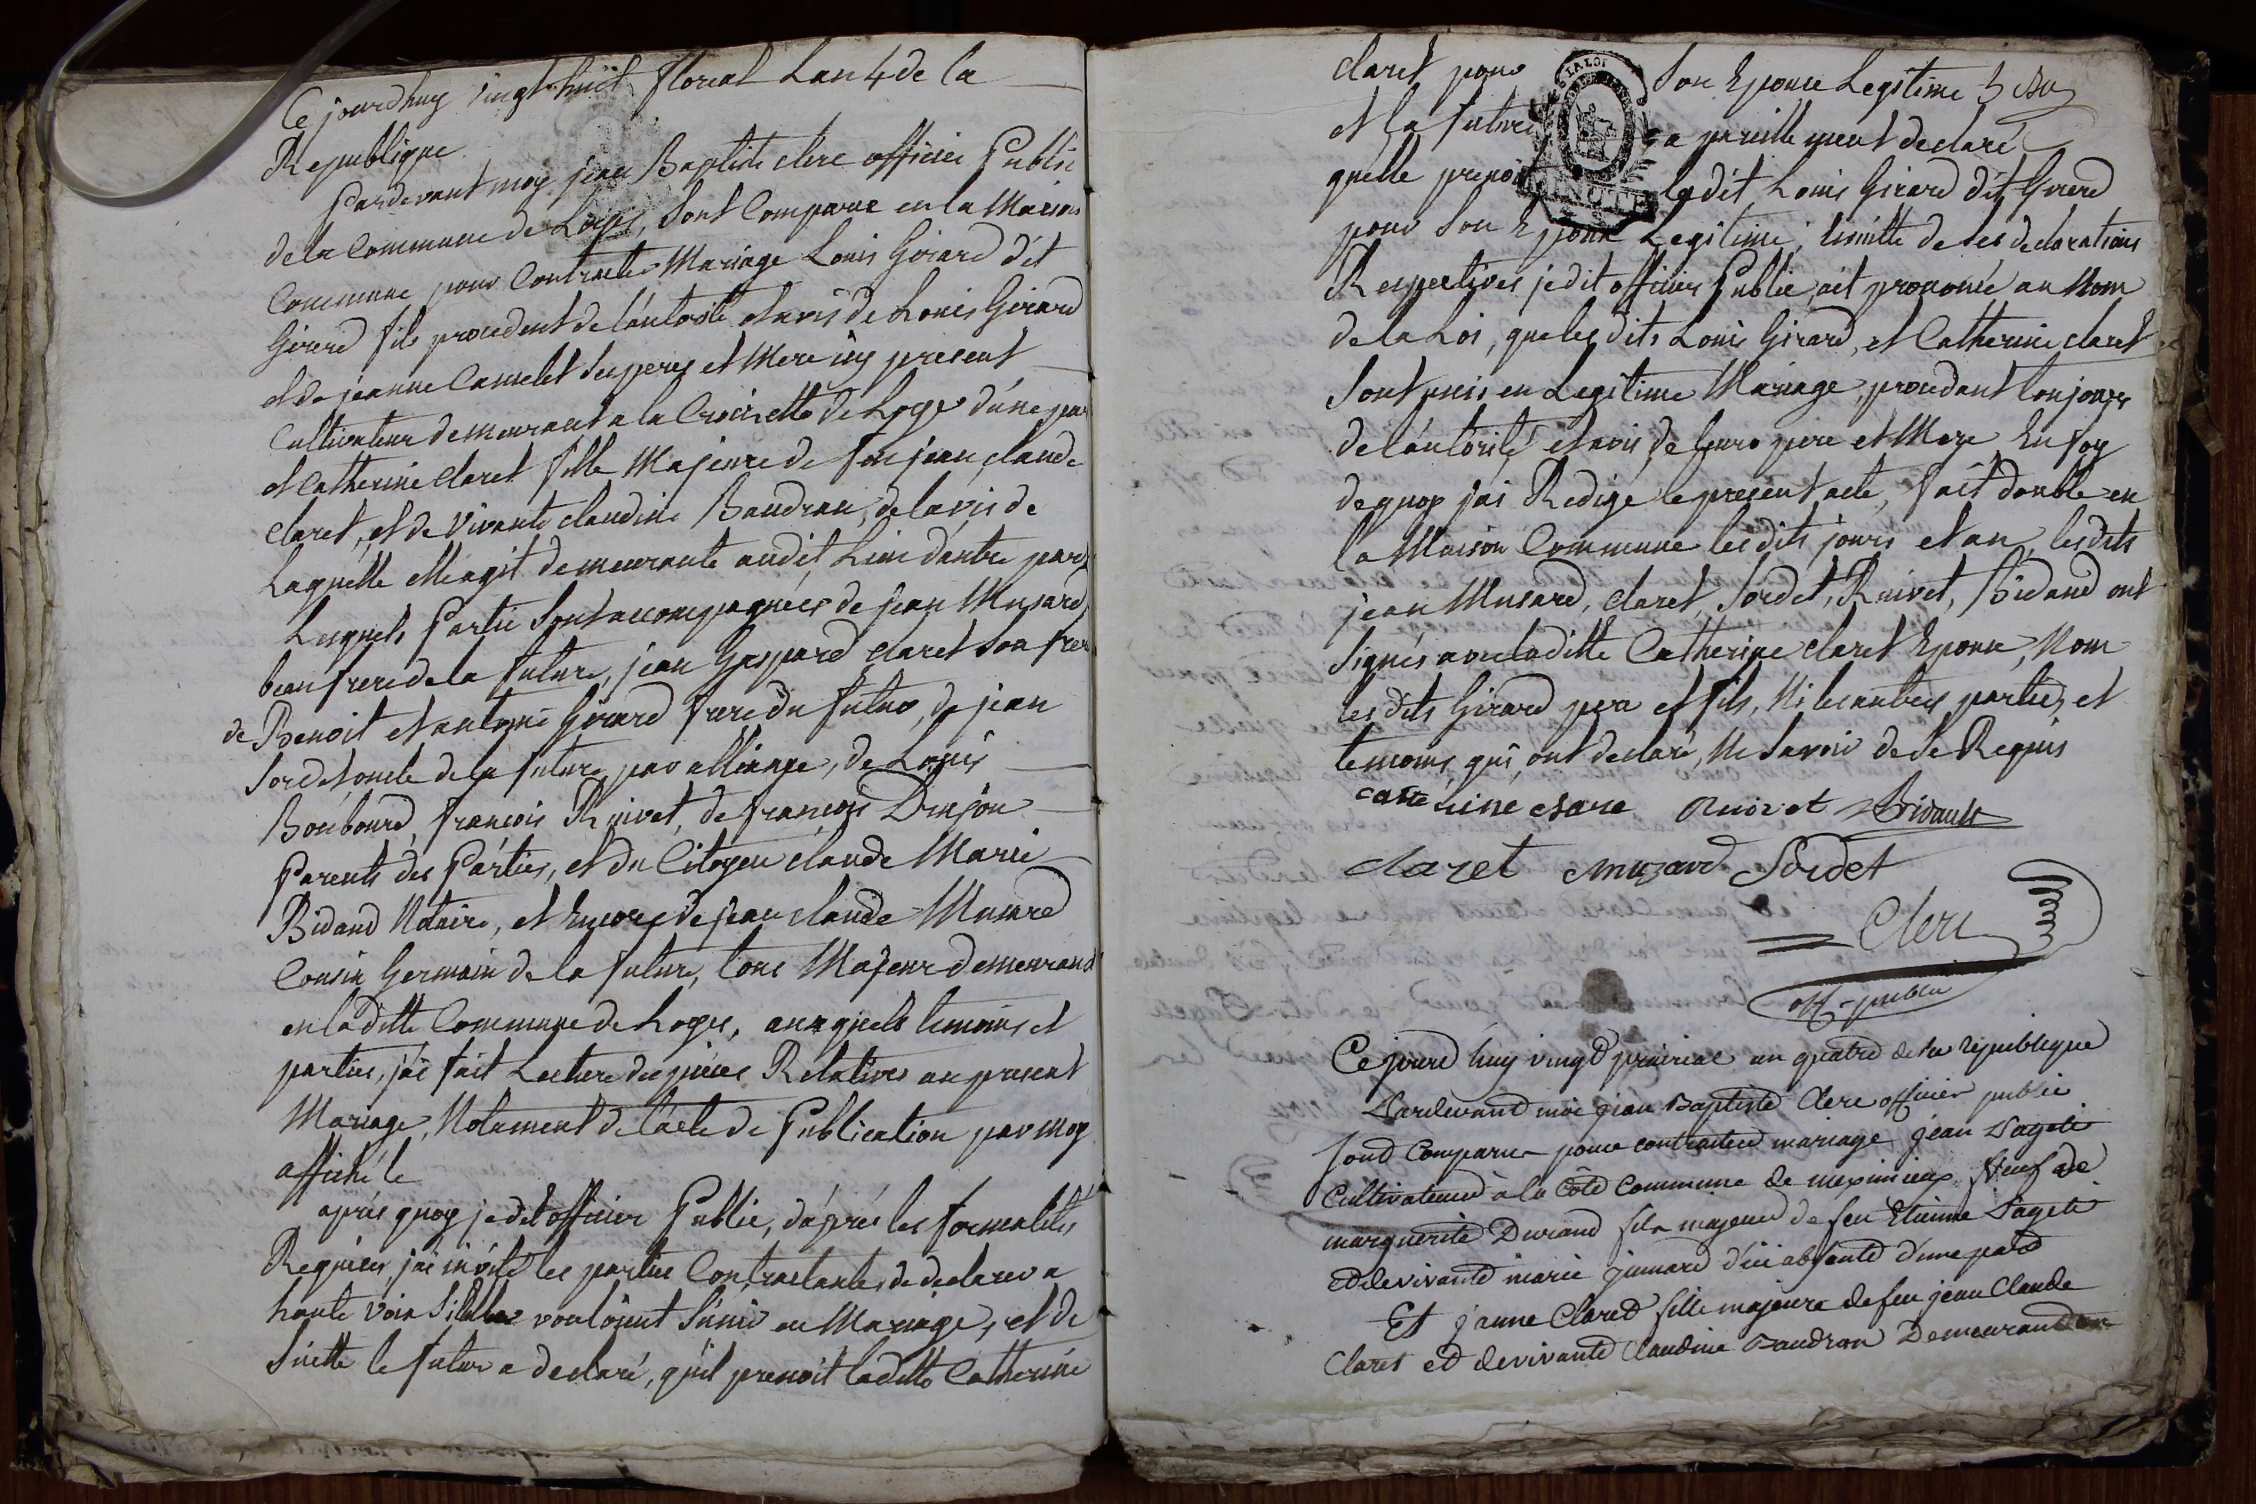 Ce jourdhuy vingt huit floreal Lan 4 de la
Republique
Pardevant moy jean Baptiste clerc officier Public
de la Commune de Loyes, Sont Comparue en la Maison
Commune pour Contracter Mariage Louis Girard dit
Girerd fils procedent de l'autorité et avis de Louis Girard
et de jeanne Camelet ses peres et Mere icy present
Cultivateur demeurant a la Croisette de Loyes d'une par
et Catherine Claret fille Majeure de feu jean claude
Claret, et de vivante claudine Baudran, de lavis de
Laquelle elle agit demeurante audit Lieu d'autre part
Lesquels Partie Sont accompagnées de jean Musard,
beaufrere de la future, jean Gaspard Claret Son frere
de Benoit et antoine Girard frere du futur, de jean
Sordet oncle de la future par alliange, de Louis
Boubourd, francois Ruivet, de francois Drujon
Parents des Parties, et du Citoyen claude Marie
Bidaud Notaire, et Encore de jean claude Musard
Cousin Germain de la future, tous Majeur demeurand
en laditte Commune de Loyes, auxquels temoins et
parties, j'ai fait Lecture des pieces Relatives au present
Mariage, Notament de l'acte de Publication par moy
affiché le
aprés quoy je dit officier Public, d'aprés les formalités
Requises, jai invité les parties Contractantes de declarer a
haute voix Si elles vouloient S'unir en Mariage, et de
Suitte le futur a declaré, qu'il prenoit laditte Catherine
claret pour Son Epouse Legitime
et la future a pareillement declaré
quelle prenoit ledit Louis Girard dit Girerd
LA LOI
pour Son Epoux Legitime; Ensuitte de ses declarations
Respectives je dit officier Public, ait prononcé au Nom
de la Loi, que les dits Louis Girard, et Catherine claret
Sont unis en Legitime Mariage, procedant toujours
de l'autorité et avis de leurs pere et Mere En foy
de quoy j'ai Redigé le present acte, fait double en
la Maison Commune les dits jours et an, les dits
jean Musard, Claret, Sordet, Ruivet, Bidaud ont
Signés avec laditte Catherine claret Epouse, Non
les dits Girard pere et fils, Ni les autres parties et
temoins, qui ont declaré, Ne Savoir de ce Requis
catte hine clare Ruivet Bidault
claret muzard Sordet
Clerc
off. public
Ce jourd huy vingt prairial an quatre de la republique
Pardevand moi jean Baptiste Clerc officier public
Sond Comparue pour contracter mariage jean Pageti
Cultivateur à la Côte Commune de meximieux veuf de
marguerite Durand fils majeur de feu Etienne Pageti
et de vivante marie jumard d'ici absente d'une part
Et jeanne Claret fille majeure de feu jean Claude
Claret et de vivante Claudine Baudran Demeurand